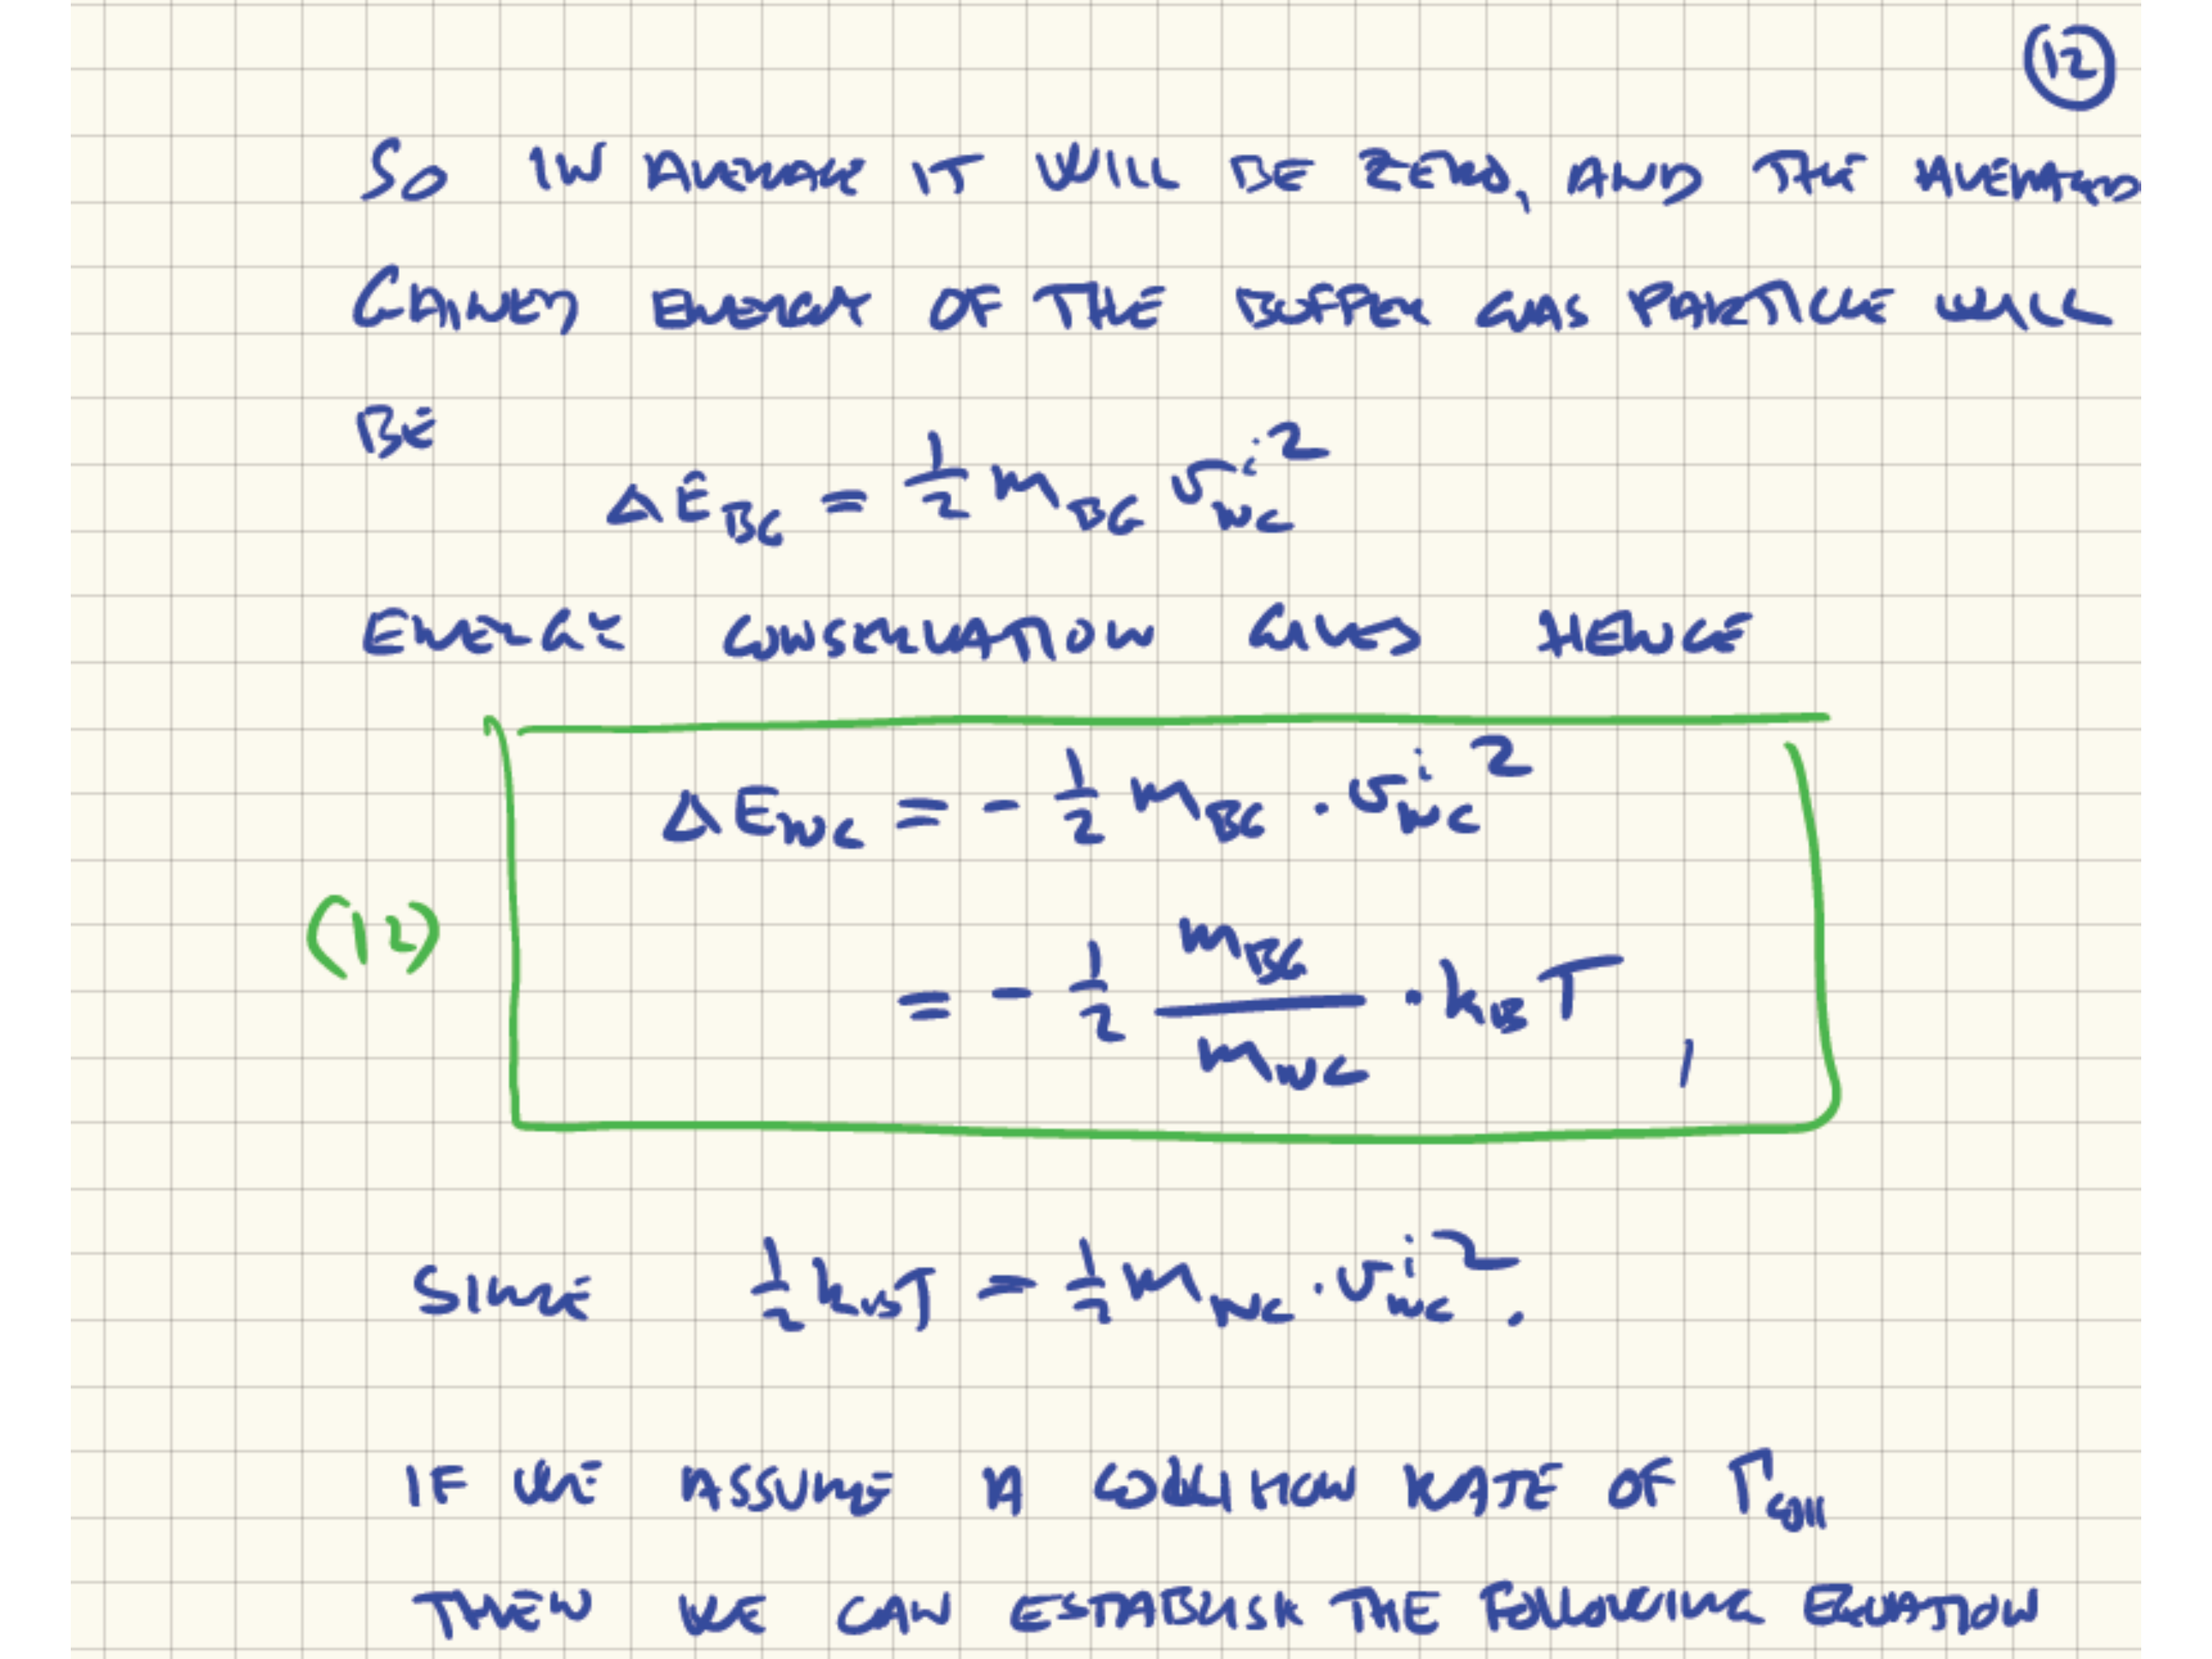 (12)
SO IN AVERAGE IT WILL BE ZERO, AND THE AVERAGED
GAINED ENERGY OF THE BUFFER GAS PARTICLE WILL
BE
ΔE_BG = 1/2 m_BG v_NC^i^2
ENERGY CONSERVATION GIVES HENCE
ΔE_NC = - 1/2 m_BG · v_NC^i^2
(12)
= - 1/2 m_BG / m_NC · k_B T ,
SINCE 1/2 k_B T = 1/2 m_NC · v_NC^i^2 .
IF WE ASSUME A COLLISION RATE OF Γ_coll
THEN WE CAN ESTABLISH THE FOLLOWING EQUATION